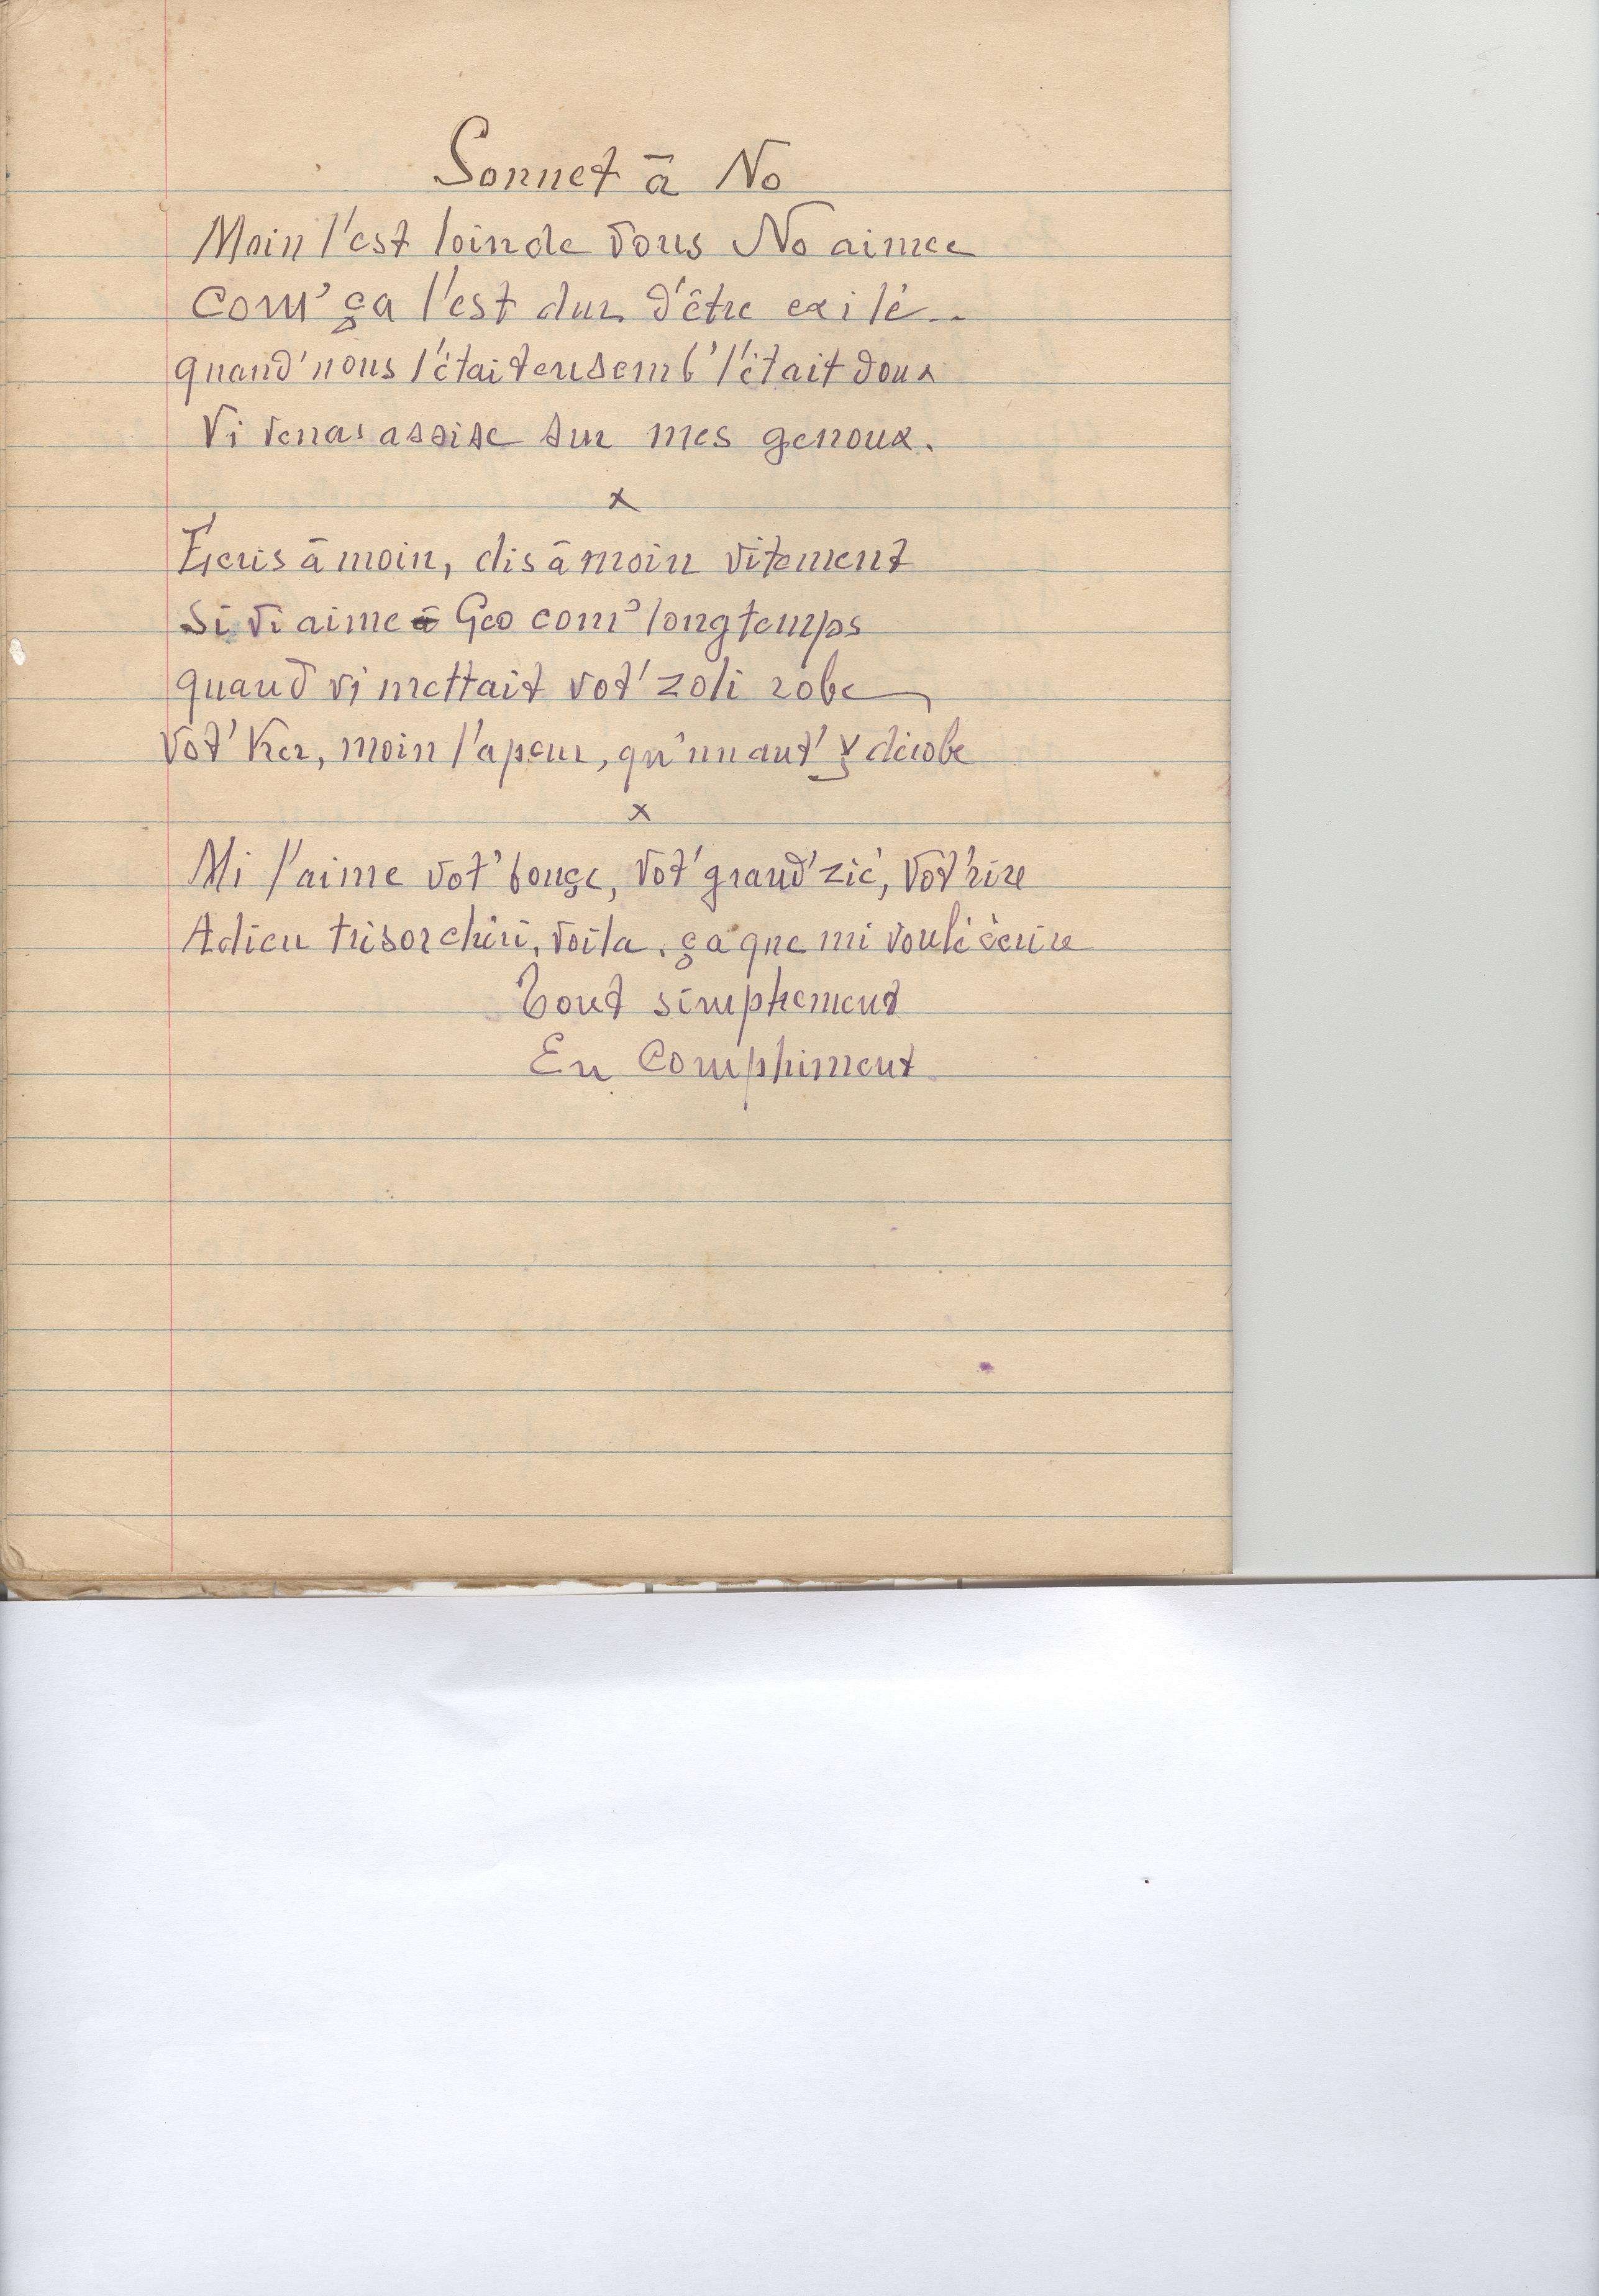 Sonnet à No
Moin l'est loin de vous No aimée
Com' ça l'est dur d'être exilé..
quand' nous l'était ensemb' l'était doux
Vi venas assise sur mes genoux.
x
Écris à moin, dis à moin vitement
Si vi aime à Geo com' longtemps
quand vi mettait vot' zoli robe
Vot' ker, moin l'a peur, qu'un aut' y dérobe
x
Mi l'aime vot' bouçe, vot' grand' zié, vot' rire
Adieu trésor chéri, voila, ça que mi voulé écrire
Tout simplement
En Compliment